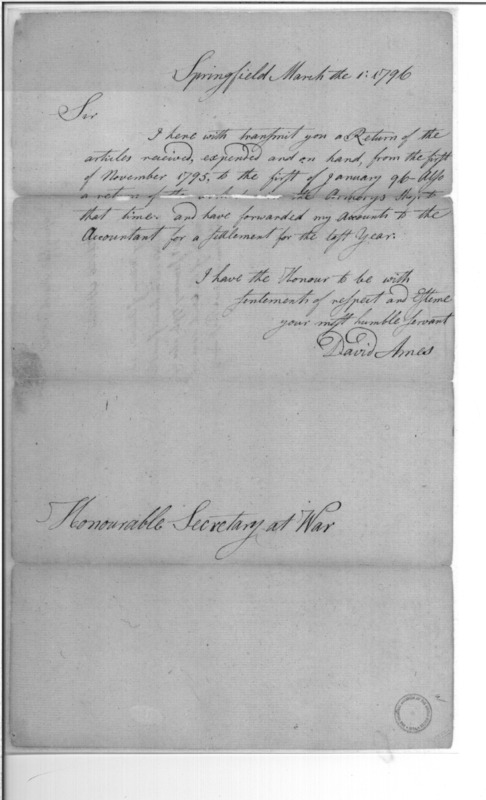 Springfield March the 1: 1796
Sir
I here with transmit you a Return of the
articles received, expended and on hand, from the first
of November 1795, to the first of January 96 - Also
a return of the the Armorys
that time and have forwarded my Accounts to the
Accountant for a settlement for the last Year.
I have the Honour to be with
sentements of respect and Esteme
your most humble servant
David Ames
Honourable Secretary at War